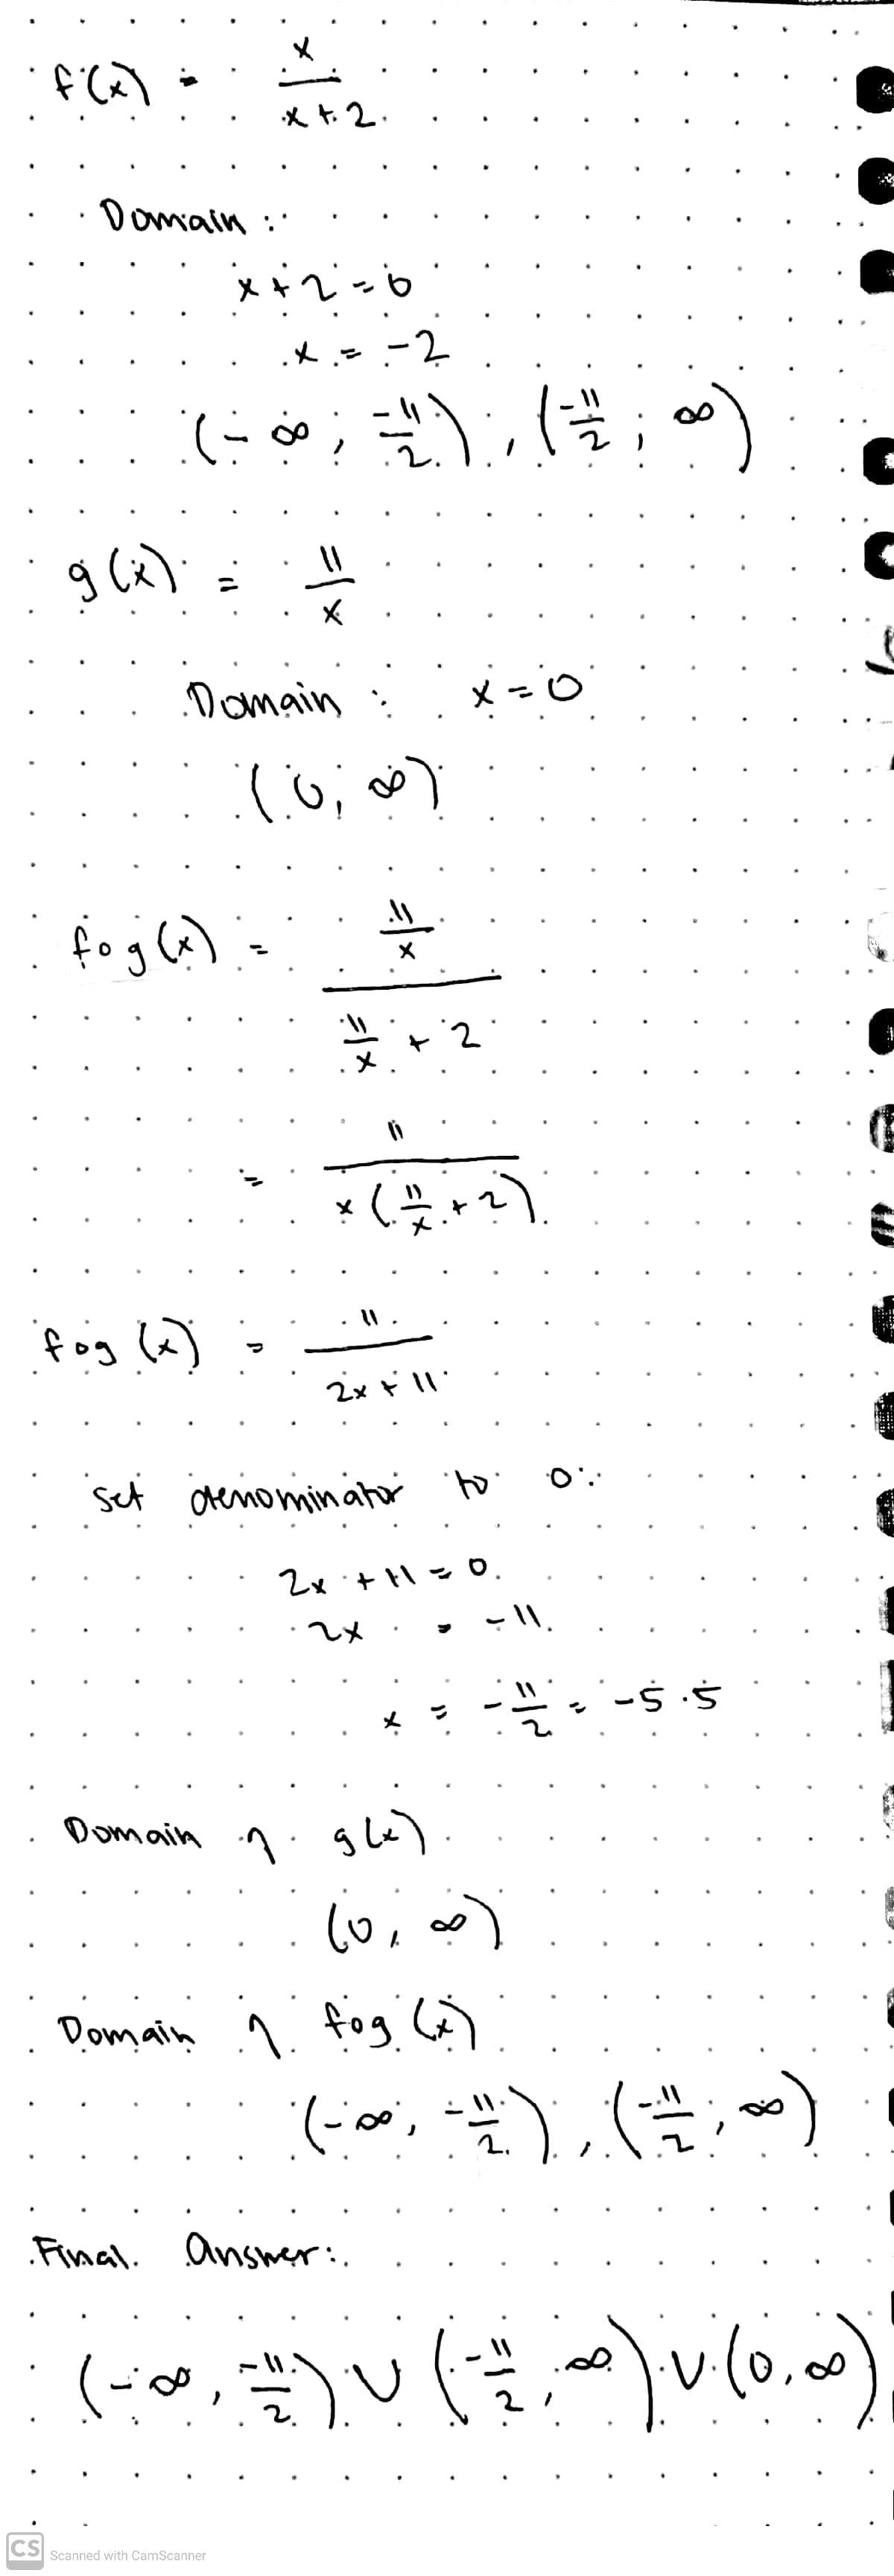 f(x) = x/(x+2)
Domain :
x + 2 = 0
x = -2
(-∞ ; -11/2) , (-11/2 ; ∞)
g(x) = 11/x
Domain : x = 0
(0 ; ∞)
fog(x) = (11/x)/(11/x + 2)
= 11/(x(11/x + 2))
fog (x) = 11/(2x + 11)
set denominator to 0:
2x + 11 = 0
2x = -11
x = -11/2 = -5.5
Domain of g(x)
(0, ∞)
Domain of fog (x)
(-∞, -11/2) , (-11/2 , ∞)
Final Answer:
(-∞, -11/2) ∪ (-11/2 , ∞) ∪ (0, ∞)
CS Scanned with CamScanner